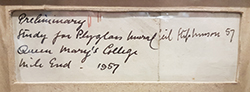 Preliminary
Study for Plyglass Mural Cecil Stephenson 57
Queen Mary's College
Mile End. 1957